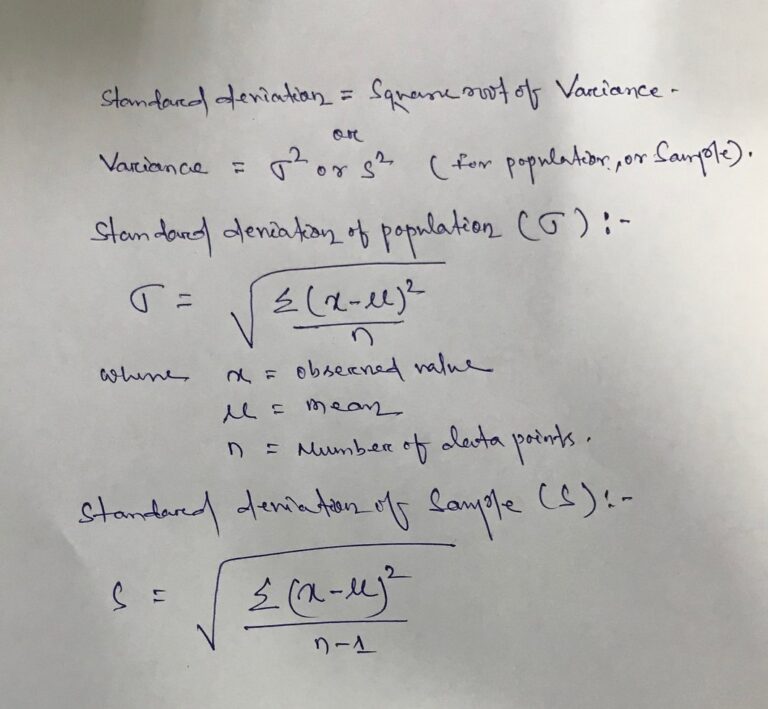 Standard deviation = Square root of Variance.
or
Variance = σ² or s² (for population, or Sample).
Standard deviation of population (σ) :-
σ = √(Σ(x-μ)²/n)
where x = observed value
μ = mean
n = Number of data points.
Standard deviation of Sample (S) :-
S = √(Σ(x-μ)²/n-1)